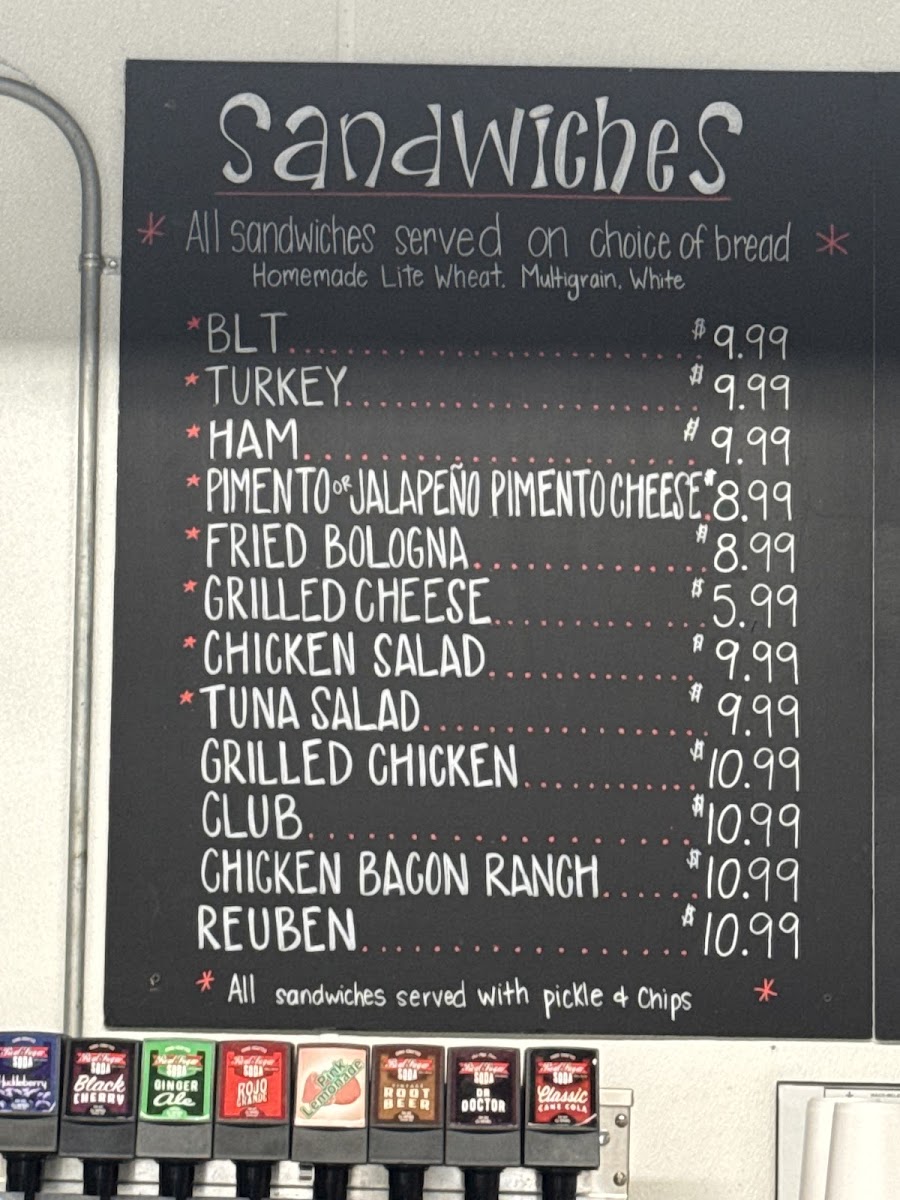 Sandwiches
* All sandwiches served on choice of bread *
Homemade Lite Wheat. Multigrain, White
* BLT $ 9.99
* TURKEY $ 9.99
* HAM $ 9.99
* PIMENTO OR JALAPEÑO PIMENTO CHEESE $ 8.99
* FRIED BOLOGNA $ 8.99
* GRILLED CHEESE $ 5.99
* CHICKEN SALAD $ 9.99
* TUNA SALAD $ 9.99
GRILLED CHICKEN $ 10.99
CLUB $ 10.99
CHICKEN BACON RANCH $ 10.99
REUBEN $ 10.99
* All sandwiches served with pickle & Chips *
SODA
Black
CHERRY
SODA
GINGER
Ale
SODA
ROJO
GRANDE
Pink
Lemonade
SODA
ROOT
BEER
SODA
DR
DOCTOR
SODA
Classic
CANE COLA